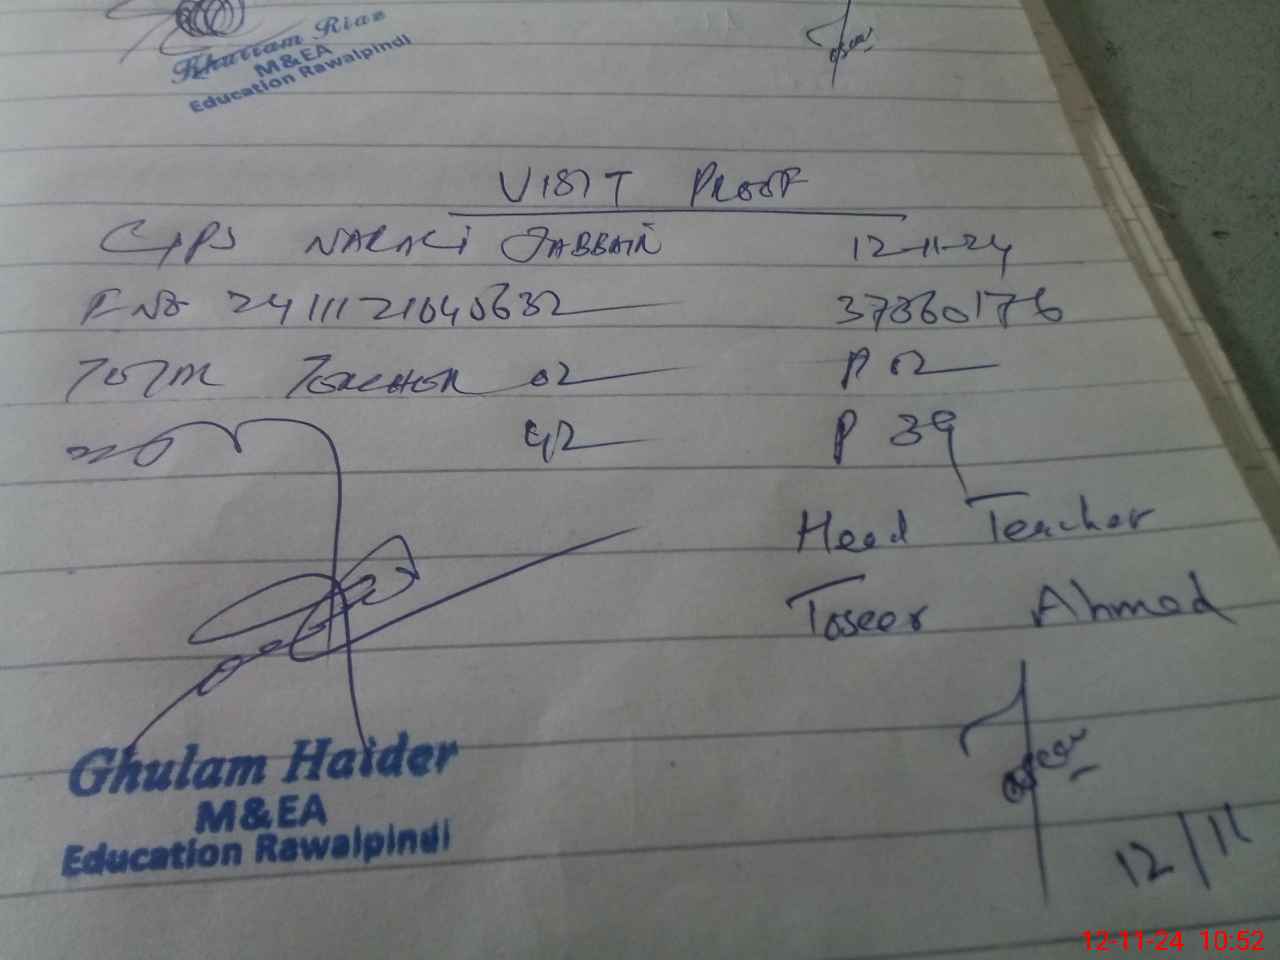 Khurram Riaz
M&EA
Education Rawalpindi
VISIT PROOF
GPS NARALI JABBAIR 12-11-24
F-NO 241112104 0632 37360176
TOTAL TEACHER 02 P 02
42 P 39
Head Teacher
Toseer Ahmed
Toseer
12/11
Ghulam Haider
M&EA
Education Rawalpindi
12-11-24 10:52